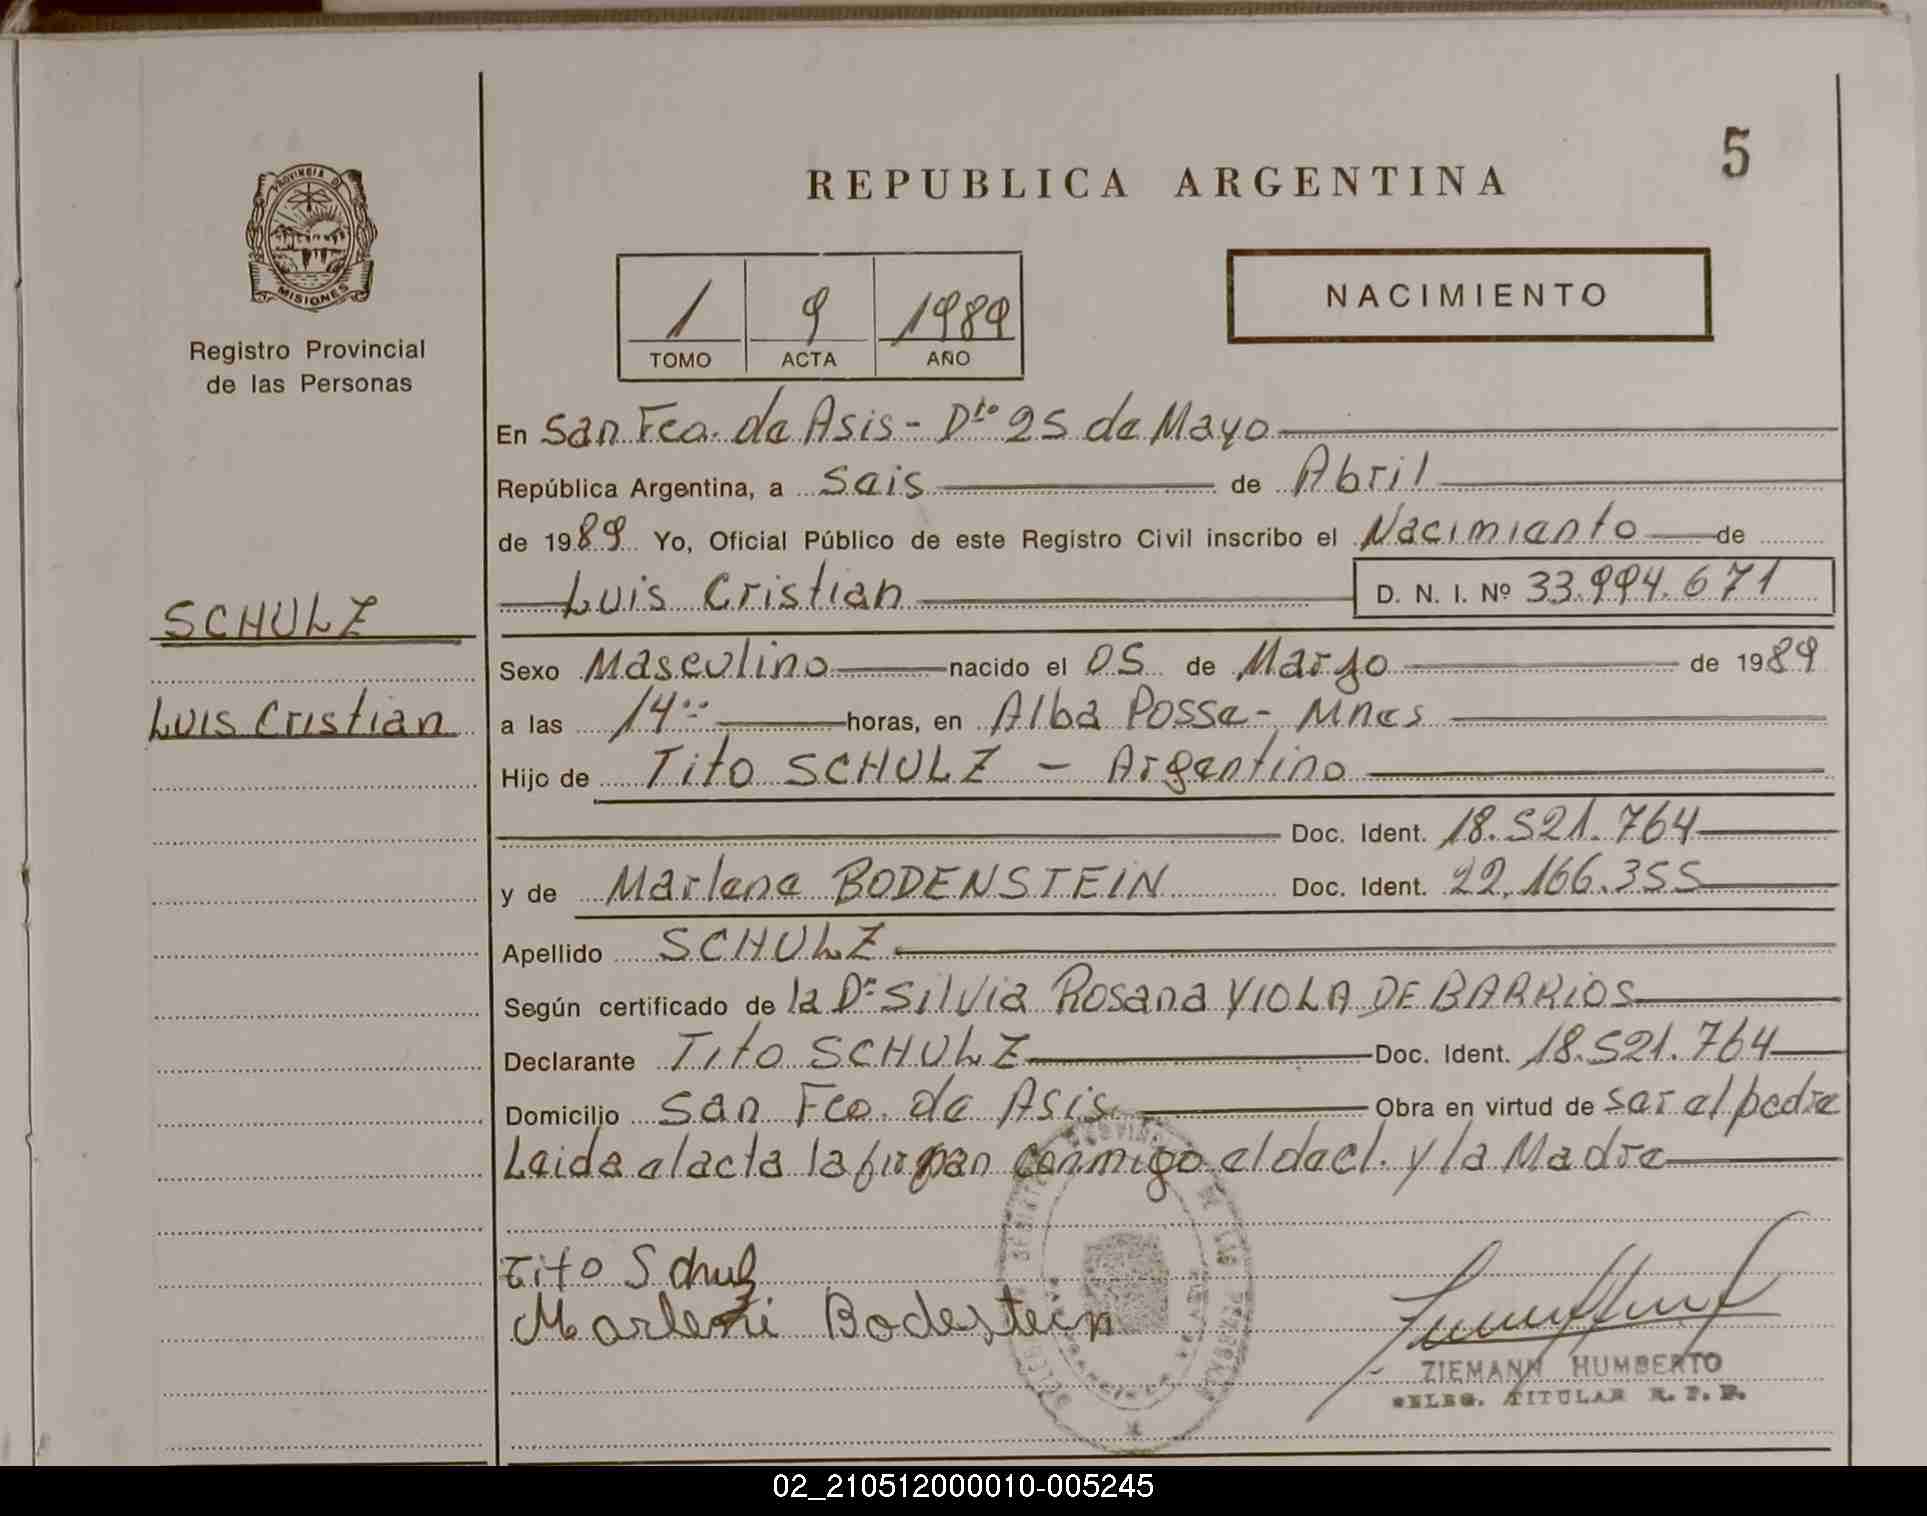 5
REPUBLICA ARGENTINA
PROVINCIA DE
MISIONES
Registro Provincial
de las Personas
1 9 1989
TOMO ACTA AÑO
NACIMIENTO
En San Fco. de Asis - Dto 25 de Mayo
República Argentina, a seis de Abril
de 1989 Yo, Oficial Público de este Registro Civil inscribo el Nacimiento de
Luis Cristian D. N. I. Nº 33.994.671
SCHULZ
Luis Cristian
Sexo Masculino nacido el 05 de Marzo de 1989
a las 14:00 horas, en Alba Posse - Mnes
Hijo de Tito SCHULZ - Argentino
Doc. Ident. 18.521.764
y de Marlene BODENSTEIN Doc. Ident. 22.166.355
Apellido SCHULZ
Según certificado de la Dra Silvia Rosana VIOLA DE BARRIOS
Declarante Tito SCHULZ Doc. Ident. 18.521.764
Domicilio San Fco. de Asis Obra en virtud de ser el padre
Leida el acta la firman conmigo el decl. y la Madre
Tito Schulz
Marleni Bodestein
ZIEMANN HUMBERTO
DELEG. TITULAR R. P. P.
02_210512000010-005245